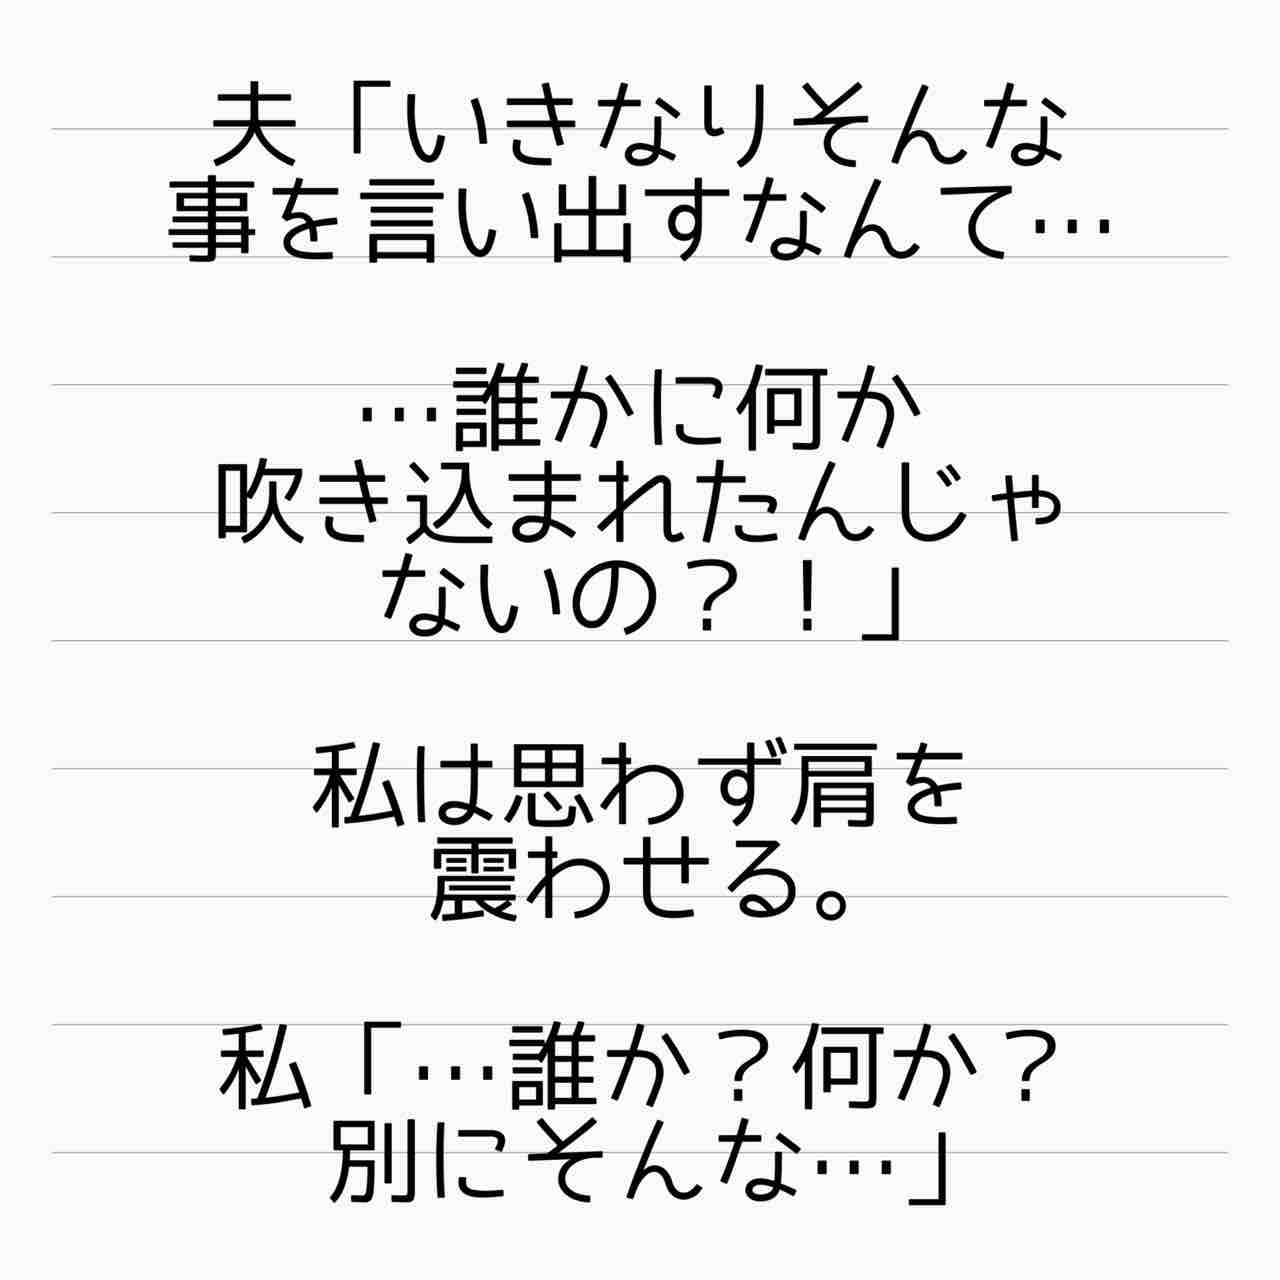 夫「いきなりそんな
事を言い出すなんて…
…誰かに何か
吹き込まれたんじゃ
ないの？！」
私は思わず肩を
震わせる。
私「…誰か？何か？
別にそんな…」